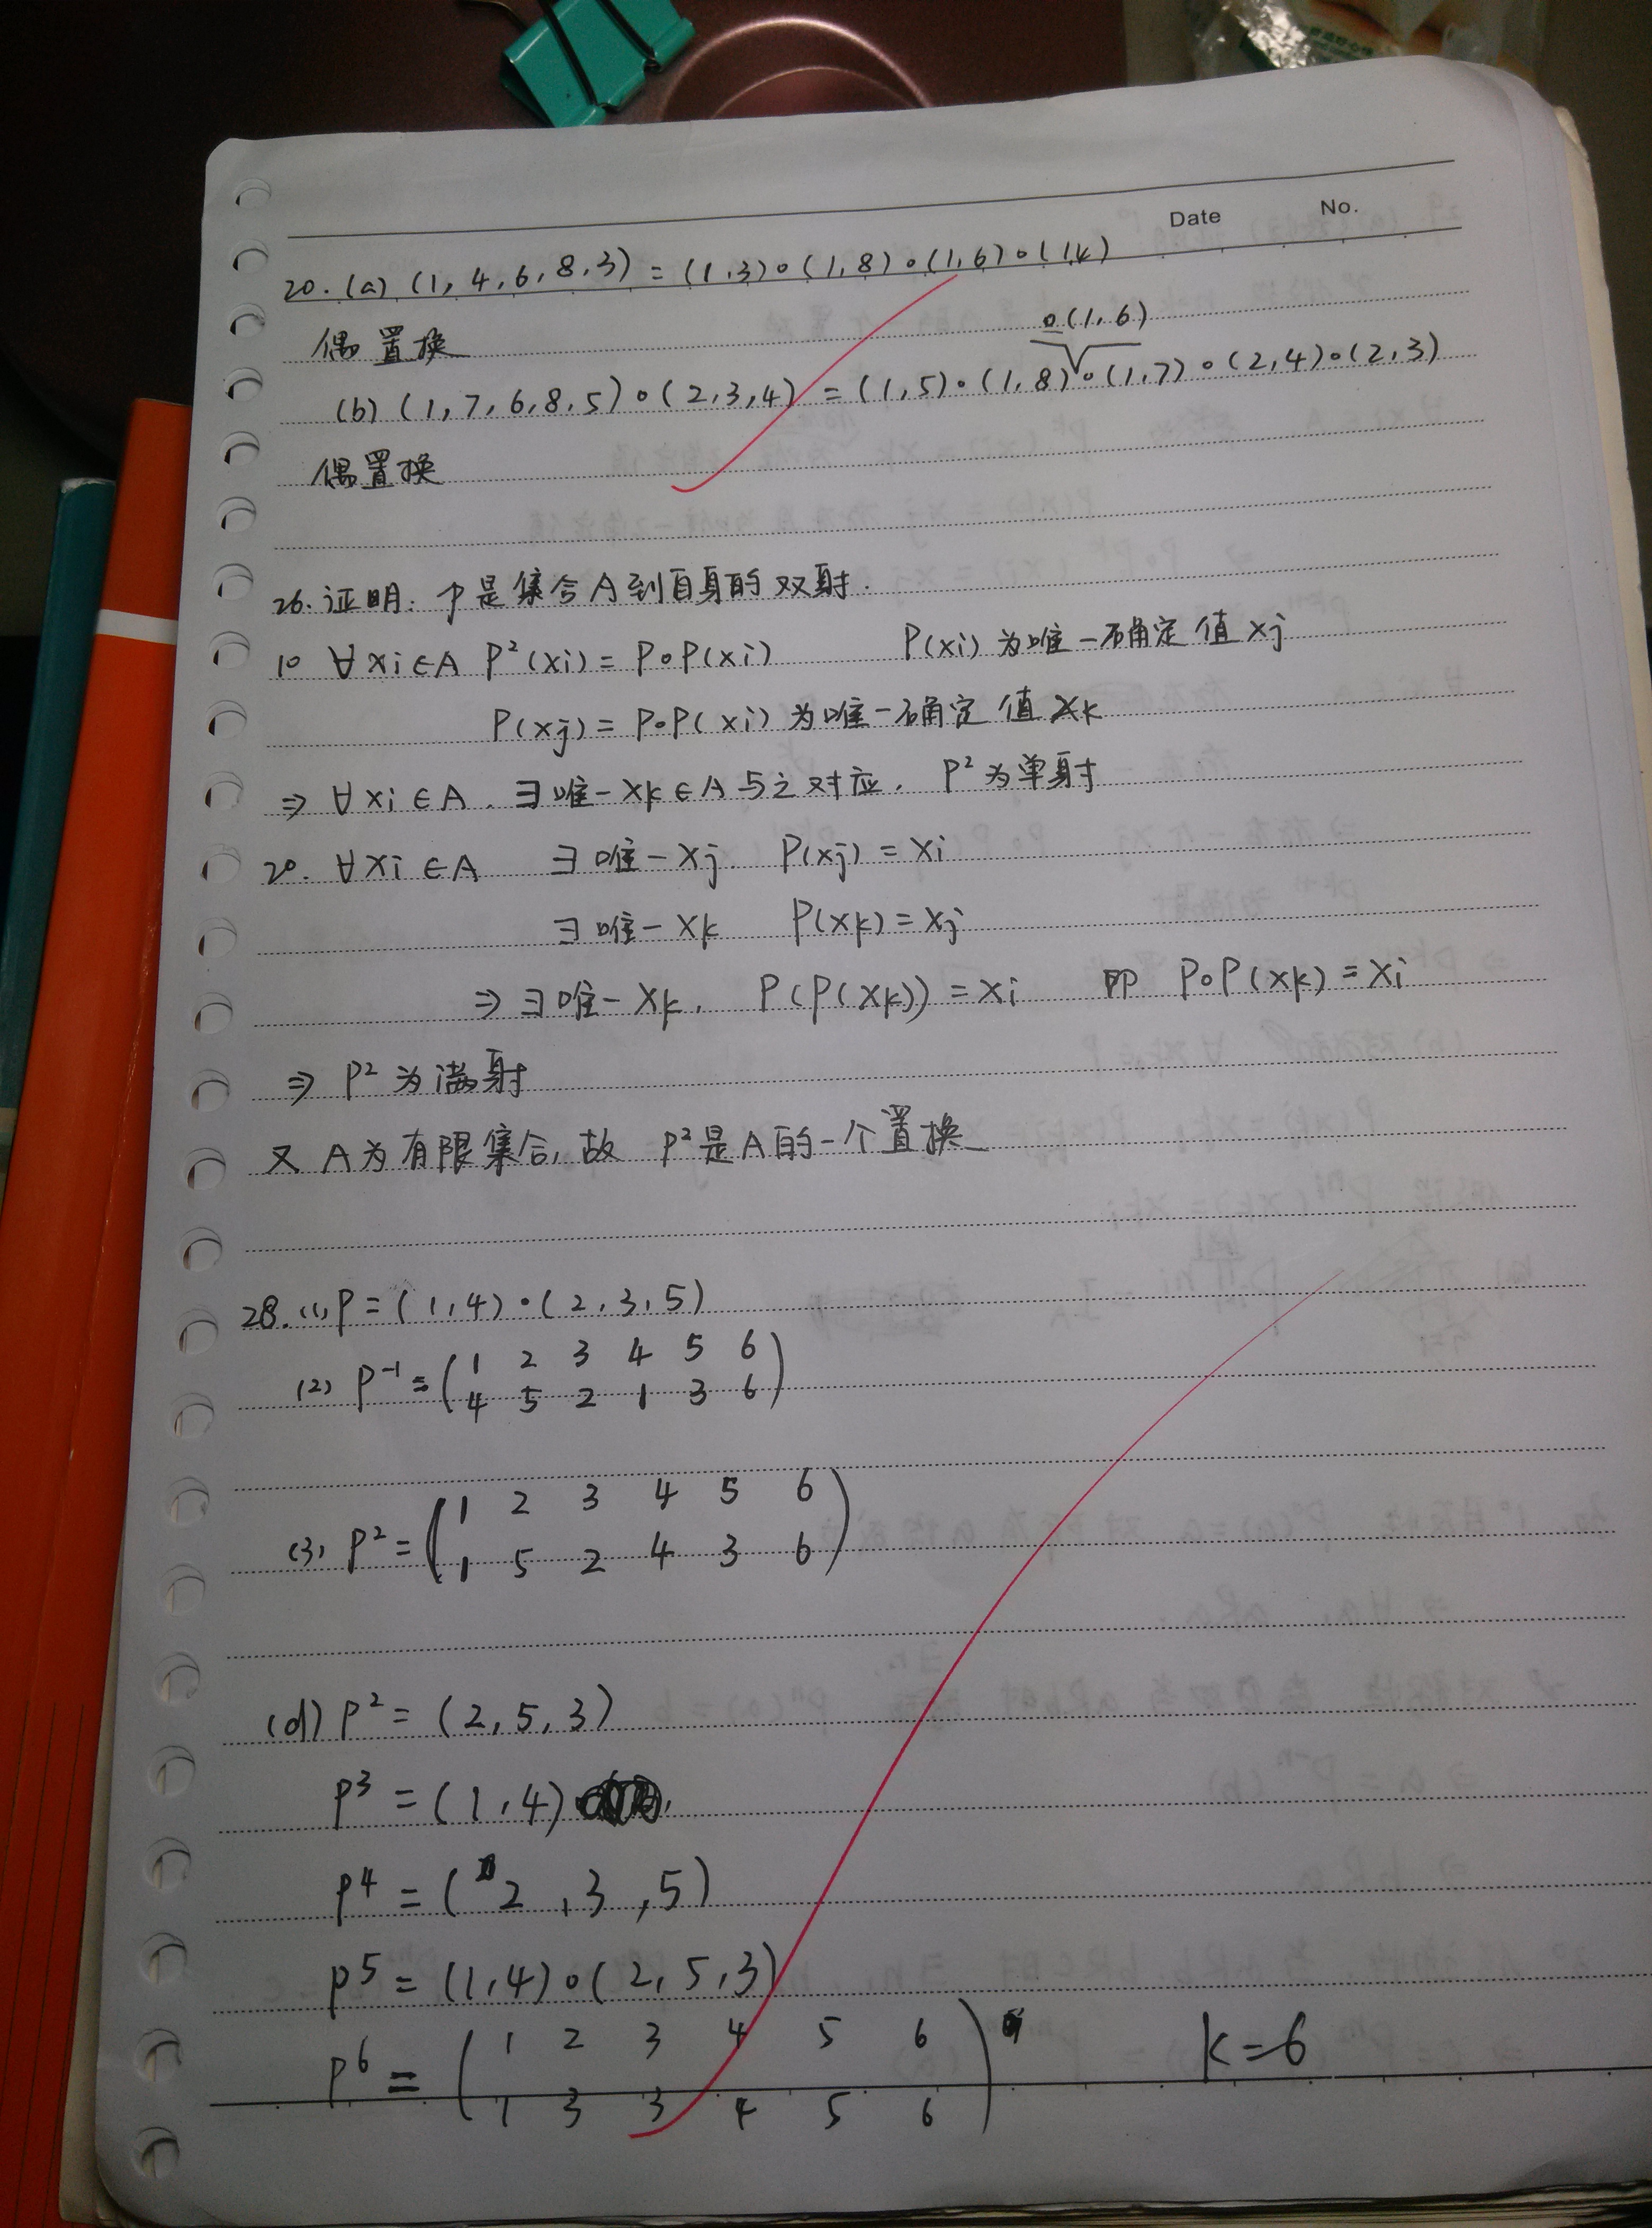 Date No.
20. (a) (1, 4, 6, 8, 3) = (1,3)∘(1,8)∘(1,6)∘(1,4)
偶置换
∘(1,6)
(b) (1,7,6,8,5)∘(2,3,4) = (1,5)∘(1,8)∘(1,7)∘(2,4)∘(2,3)
偶置换
26. 证明: P是集合A到自身的双射.
1° ∀xi∈A P²(xi) = P∘P(xi) P(xi) 为唯一确定值 xj
P(xj) = P∘P(xi) 为唯一确定值 xk
⇒ ∀xi∈A, ∃唯一xk∈A与之对应, P²为单射
2°. ∀xi∈A ∃唯一xj. P(xj) = xi
∃唯一xk P(xk) = xj
⇒ ∃唯一xk, P(P(xk)) = xi 即 P∘P(xk) = xi
⇒ P²为满射
又A为有限集合, 故 P²是A的一个置换
28. (1) P = (1,4)∘(2,3,5)
1 2 3 4 5 6
(2) P⁻¹ = ( )
4 5 2 1 3 6
1 2 3 4 5 6
(3) P² = ( )
1 5 2 4 3 6
(d) P² = (2,5,3)
P³ = (1,4)
P⁴ = (2,3,5)
P⁵ = (1,4)∘(2,5,3)
1 2 3 4 5 6
P⁶ = ( ) K=6
1 3 3 4 5 6